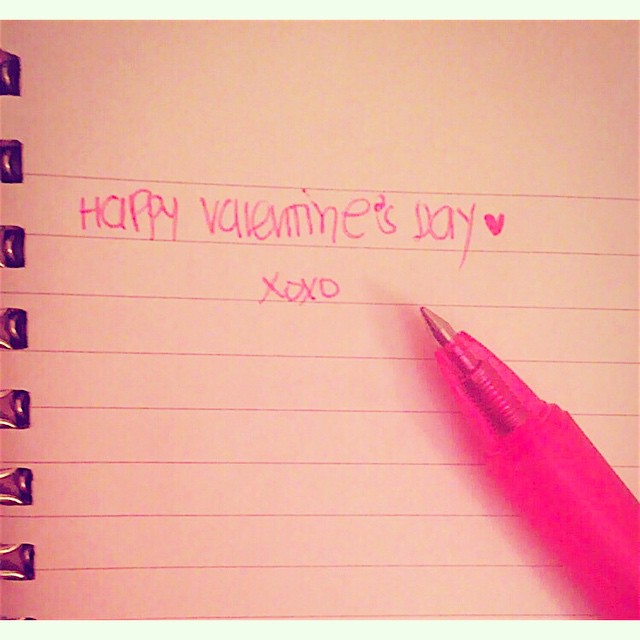 Happy Valentine's Day♥
xoxo